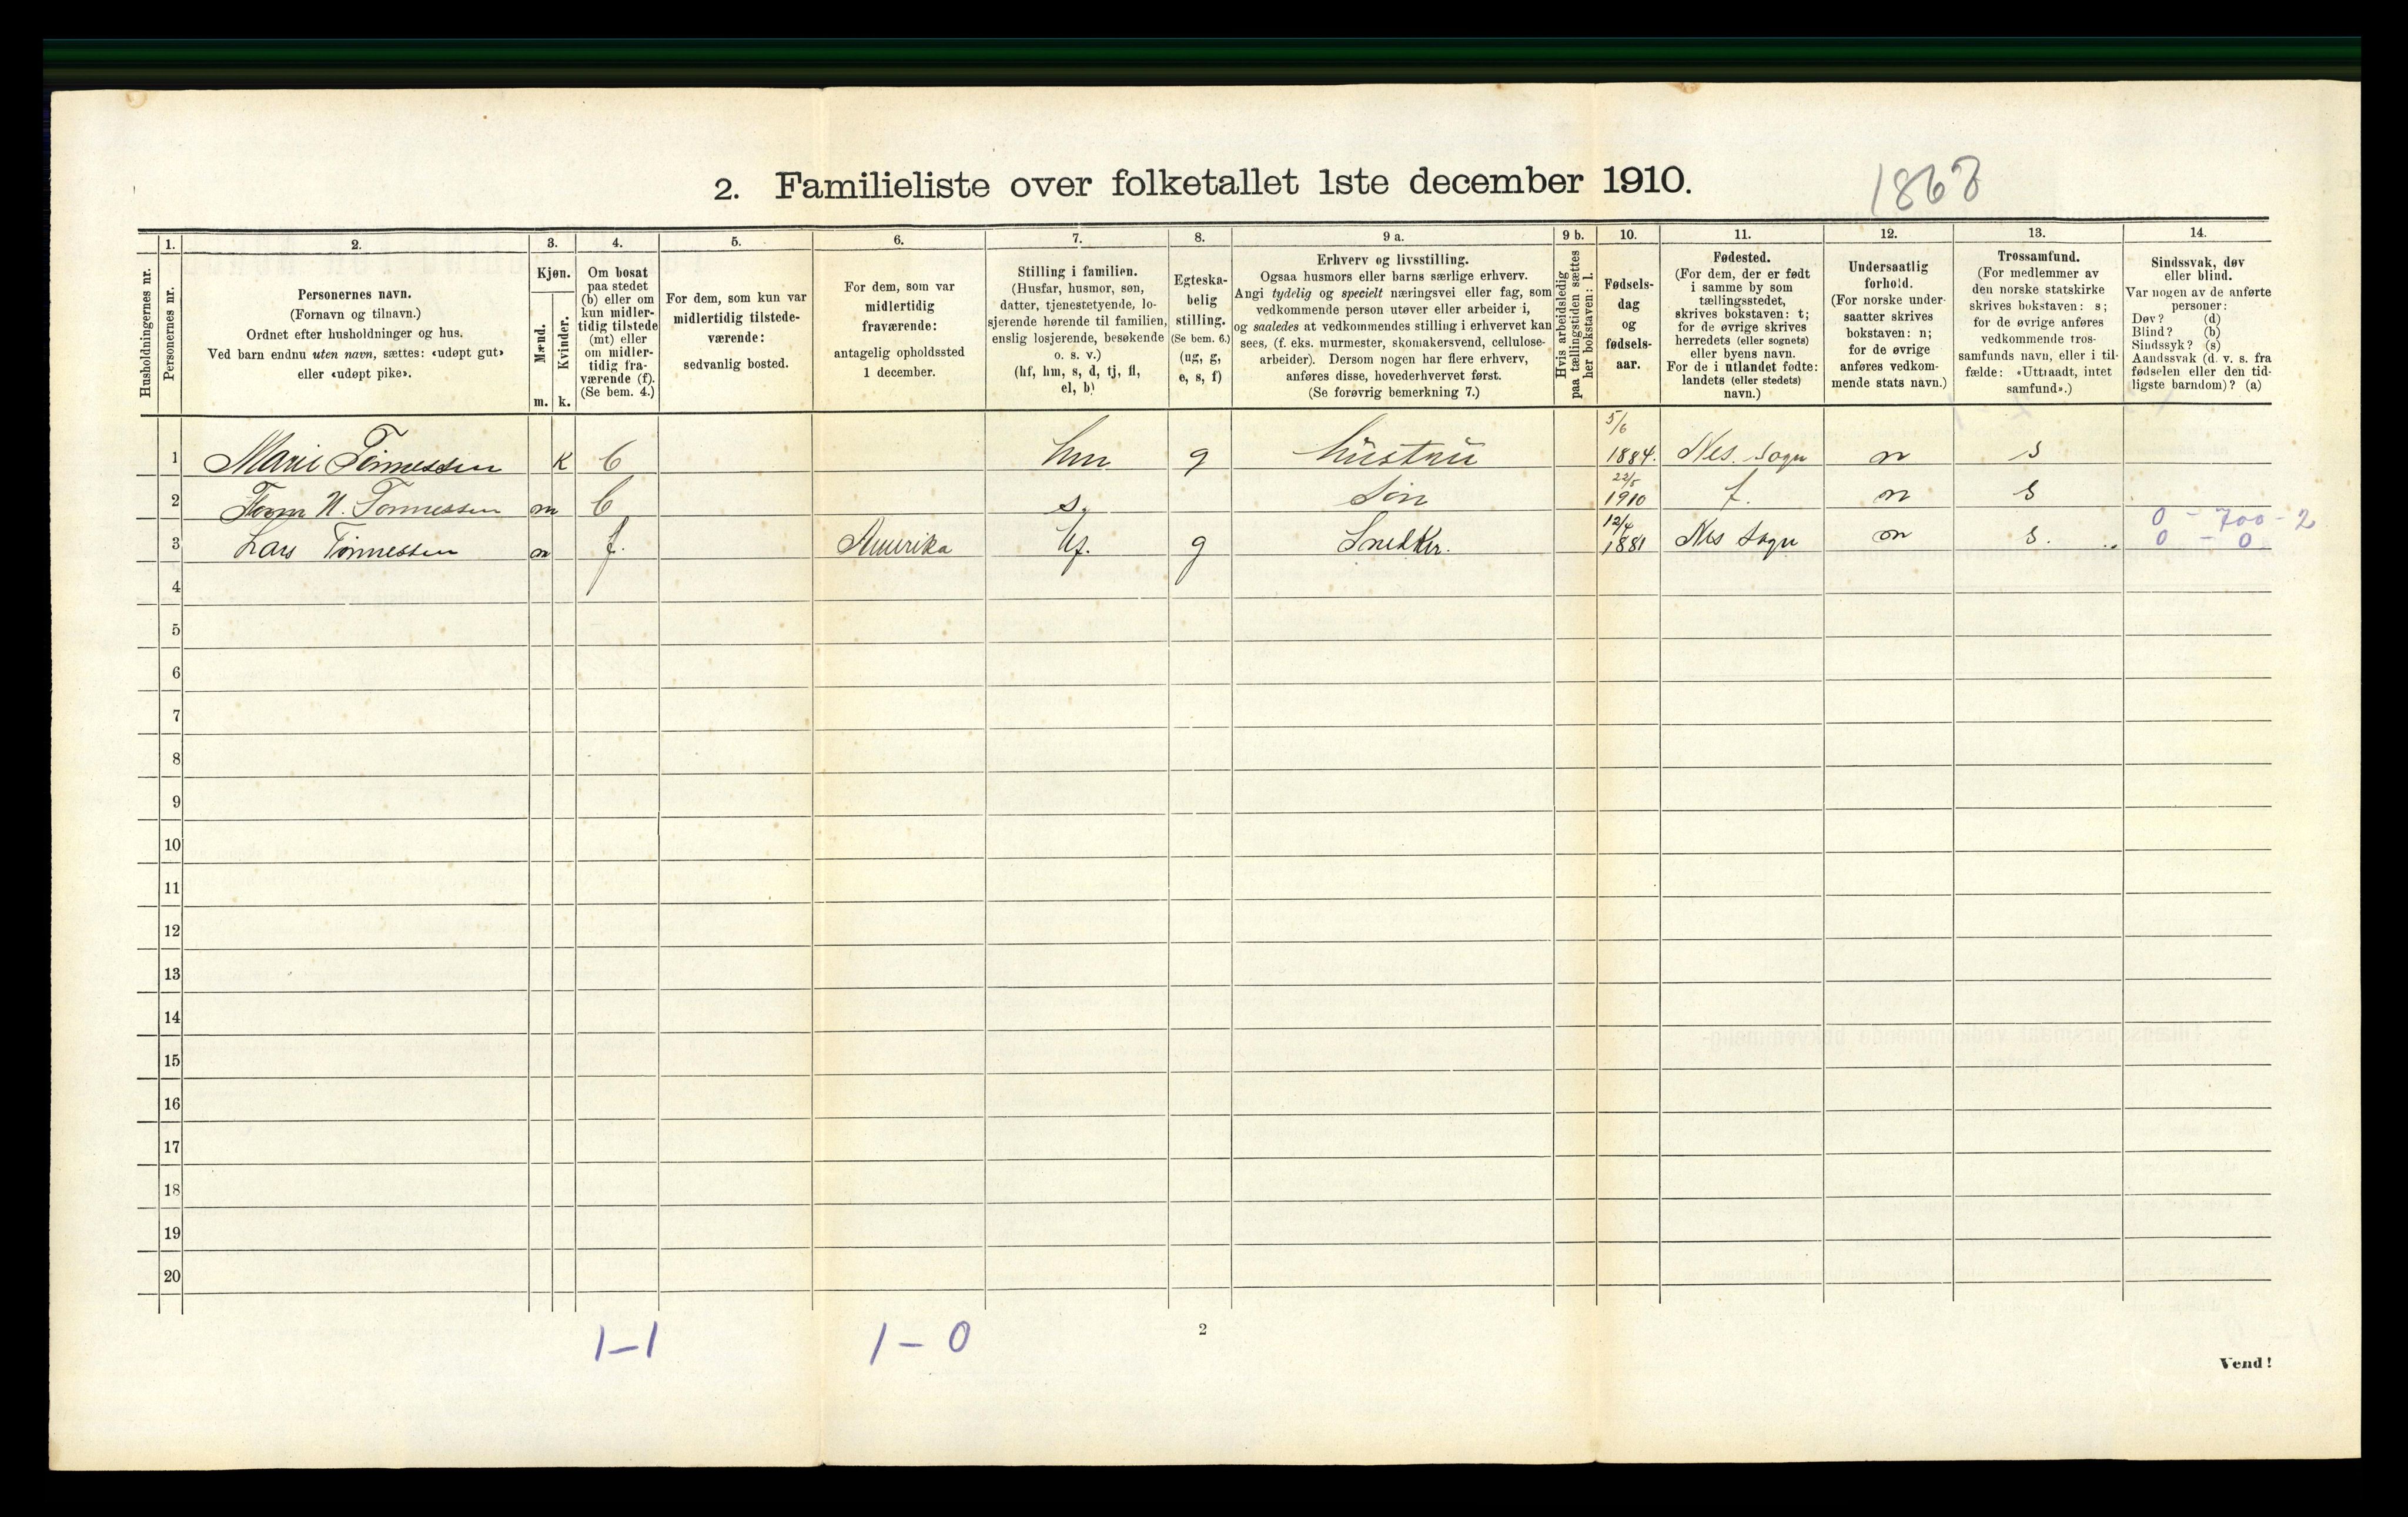 2. Familieliste over folketallet 1ste december 1910.
1868
Husholdningernes nr.
1.
Personernes nr.
2.
Personernes navn.
(Fornavn og tilnavn.)
Ordnet efter husholdninger og hus.
Ved barn endnu uten navn, sættes: «udøpt gut»
eller «udøpt pike».
3.
Kjøn.
Mænd.
Kvinder.
m. k.
4.
Om bosat
paa stedet
(b) eller om
kun midler-
tidig tilstede
(mt) eller
om midler-
tidig fra-
værende (f).
(Se bem. 4.)
5.
For dem, som kun var
midlertidig tilstede-
værende:
sedvanlig bosted.
6.
For dem, som var
midlertidig
fraværende:
antagelig opholdssted
1 december.
7.
Stilling i familien.
(Husfar, husmor, søn,
datter, tjenestetyende, lo-
sjerende hørende til familien,
enslig losjerende, besøkende
o. s. v.)
(hf, hm, s, d, tj, fl,
el, b)
8.
Egteska-
belig
stilling.
(Se bem. 6.)
(ug, g,
e, s, f)
9 a.
Erhverv og livsstilling.
Ogsaa husmors eller barns særlige erhverv.
Angi tydelig og specielt næringsvei eller fag, som
vedkommende person utøver eller arbeider i,
og saaledes at vedkommendes stilling i erhvervet kan
sees, (f. eks. murmester, skomakersvend, cellulose-
arbeider). Dersom nogen har flere erhverv,
anføres disse, hovederhvervet først.
(Se forøvrig bemerkning 7.)
9 b.
Hvis arbeidsledig
paa tællingstiden sættes
her bokstaven: l.
10.
Fødsels-
dag
og
fødsels-
aar.
11.
Fødested.
(For dem, der er født
i samme by som
tællingsstedet,
skrives bokstaven: t;
for de øvrige skrives
herredets (eller sognets)
eller byens navn.
For de i utlandet fødte:
landets (eller stedets)
navn.)
12.
Undersaatlig
forhold.
(For norske under-
saatter skrives
bokstaven: n;
for de øvrige
anføres vedkom-
mende stats navn.)
13.
Trossamfund.
(For medlemmer av
den norske statskirke
skrives bokstaven: s;
for de øvrige anføres
vedkommende tros-
samfunds navn, eller i til-
fælde: «Uttraadt, intet
samfund».)
14.
Sindssvak, døv
eller blind.
Var nogen av de anførte
personer:
Døv? (d)
Blind? (b)
Sindssyk? (s)
Aandssvak (d. v. s. fra
fødselen eller den tid-
ligste barndom)? (a)
1 Marie Tönnessen K b hm g hüstrü 5/6 1884. Nes. Sogn n s
2 N. Tönnessen m b s. Sön 22/5 1910 t. n s
0 - 700 - 2
3 Lars Tönnessen m f. Amerika hf. g Snedker. 12/4 1881 Nes Sogn n s. 0 - 0
4
5
6
7
8
9
10
11
12
13
14
15
16
17
18
19
20
1-1 1-0
2
Vend!